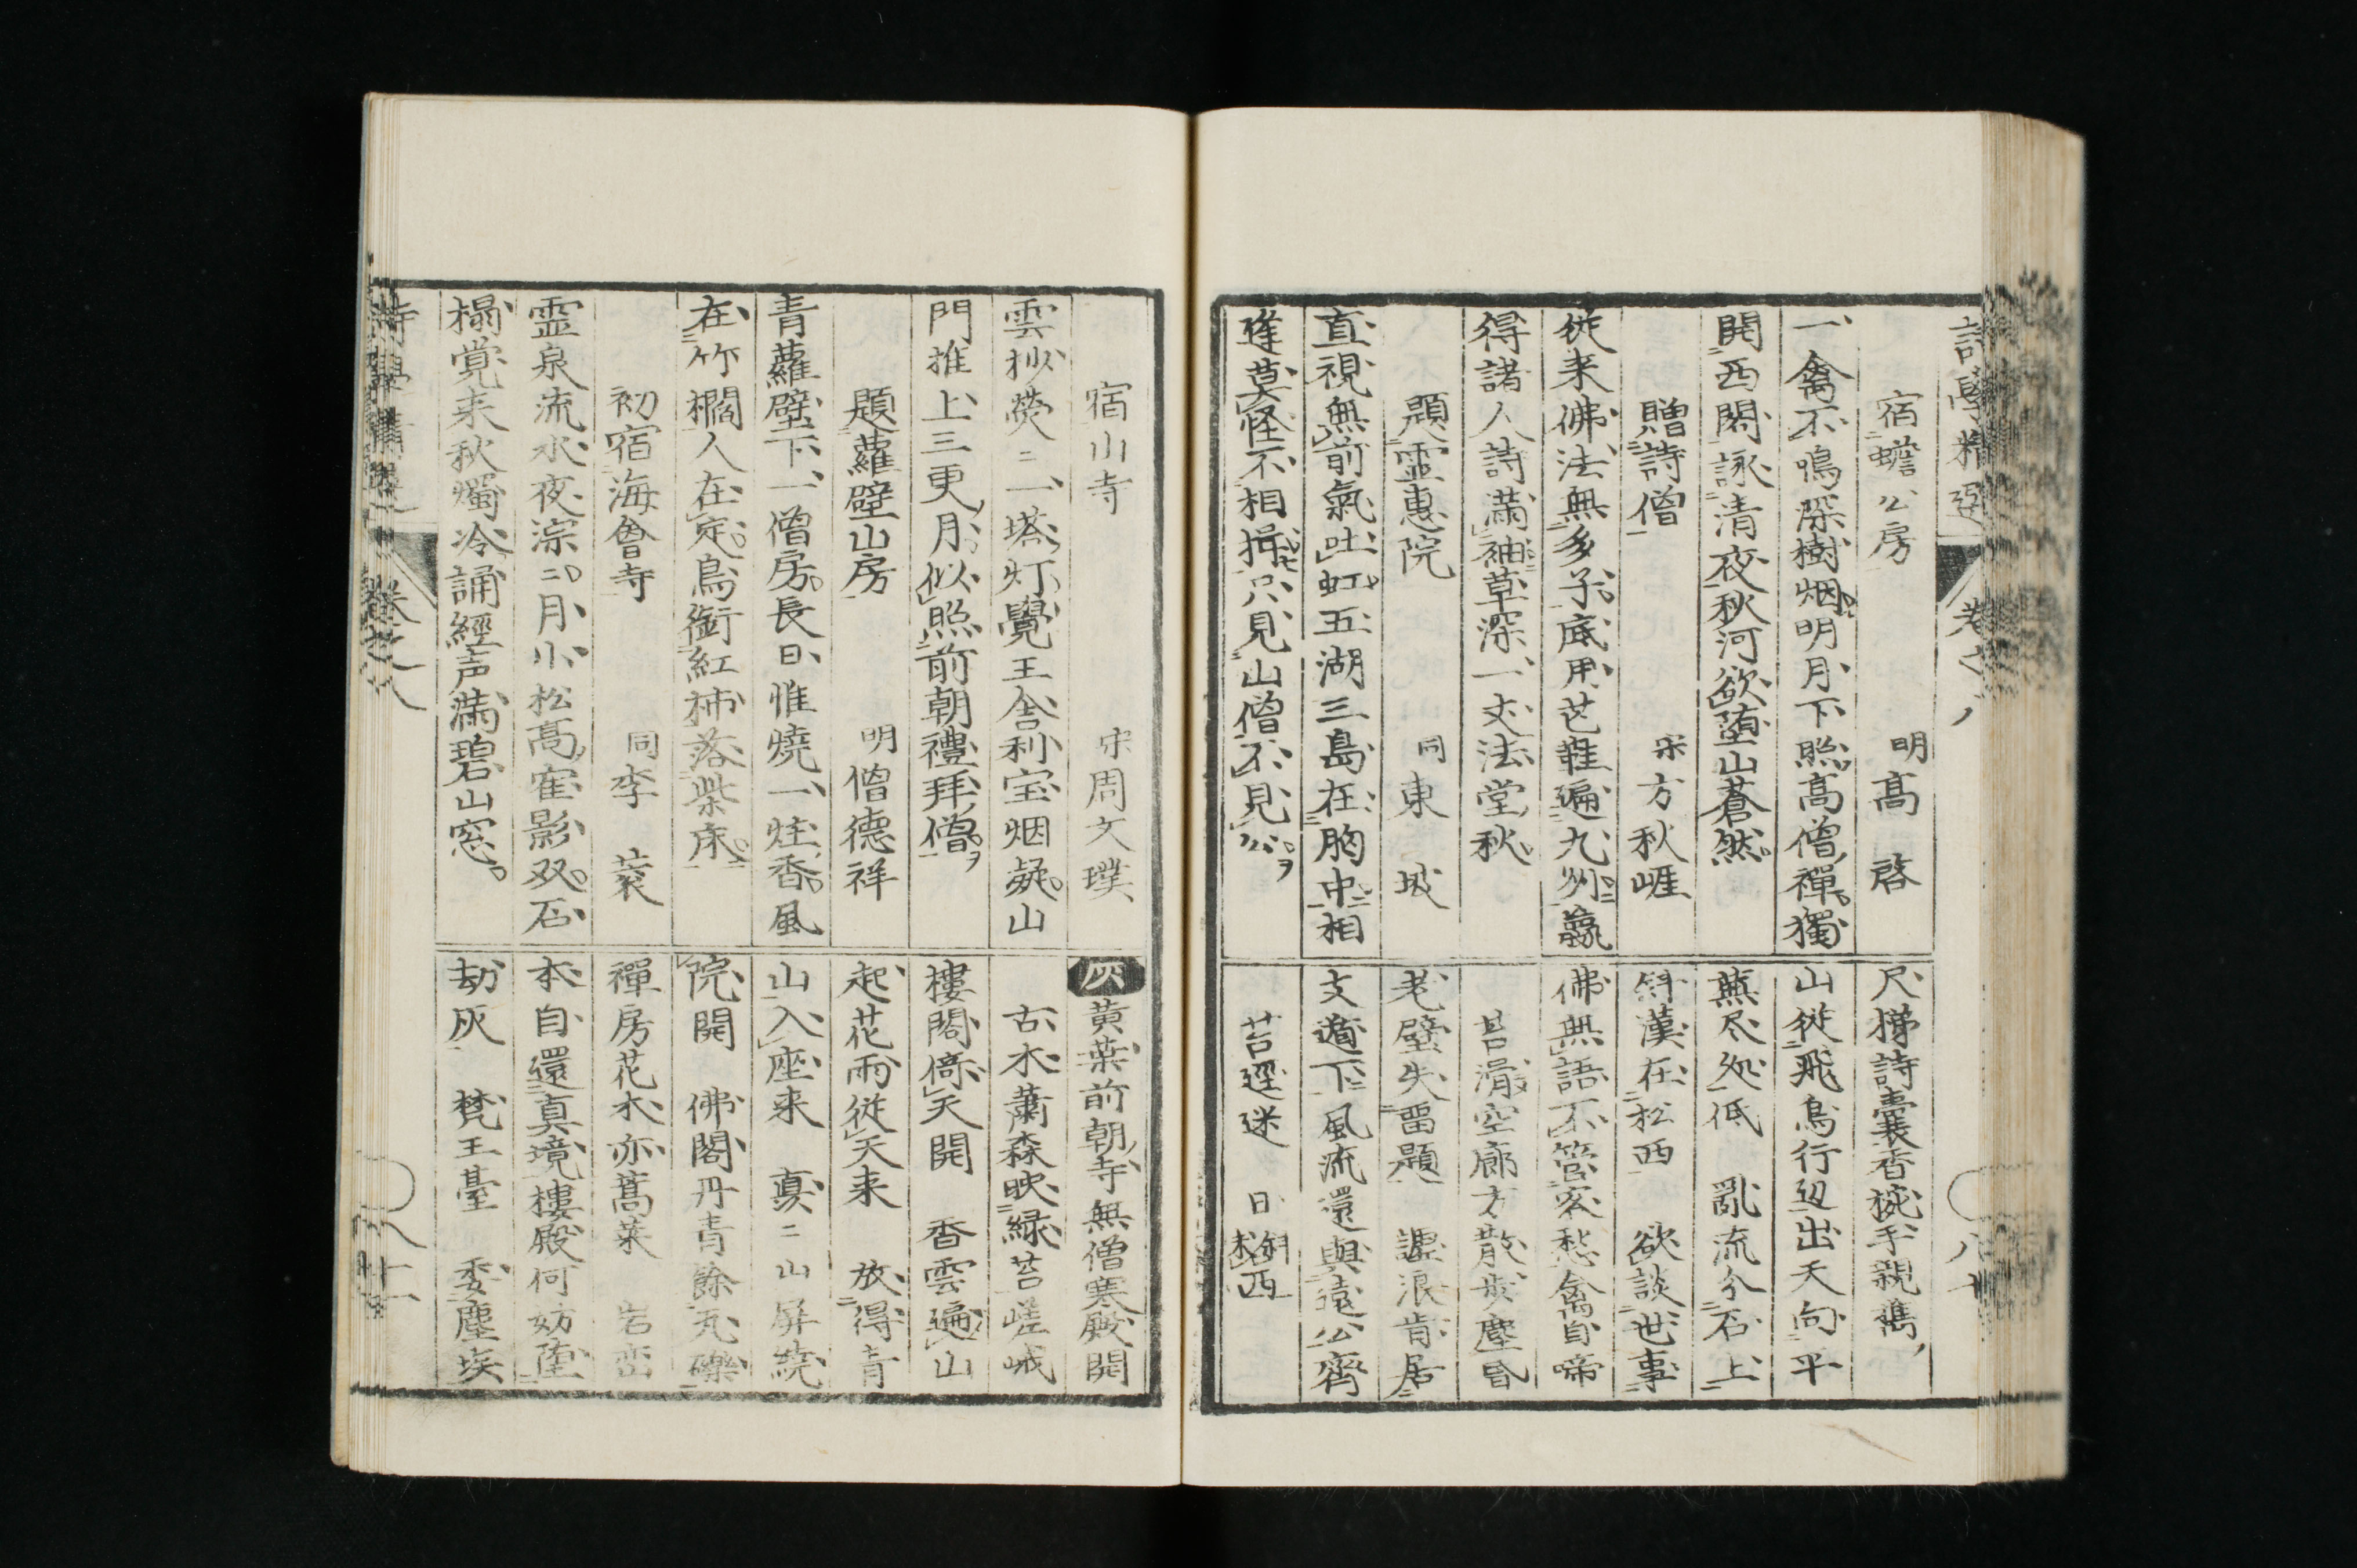 詩學精選 卷之八 八十
宿蟾公房 明高 啓
一禽不鳴深樹烟明月下照高僧禪獨
開西閣詠清夜秋河欲墮山蒼然
贈詩僧 宋方秋崕
從来佛法無多子底用芒鞋遍九州贏
得諸人詩滿袖草深一丈法堂秋
題霊惠院 同東 坡
直視無前氣吐虹五湖三島在胸中相
逢莫怪不相揖只見山僧不見公
尺梯詩囊香椀手親携
山從飛鳥行辺出天向平
蕪尽処低 亂流分石上
斜漢在松西 欲談世事
佛無語不管客愁禽自啼
苔滑空廊方散歩塵昏
老壁失畱題 謔浪肯居
支遁下風流還與遠公齊
苔逕迷 日西
宿山寺 宋周文璞
雲杪熒〻一塔灯覺王舎利宝烟凝山
門推上三更月似照前朝禮拜僧
題蘿壁山房 明僧德祥
青蘿壁下一僧房長日惟燒一炷香風
在竹櫊人在定鳥銜紅柿落柴床
初宿海會寺 同李 蓘
霊泉流水夜淙〻月小松高隺影双石
榻覚来秋燭冷誦經声滿碧山窓
灰 黄葉前朝寺無僧寒殿開
古木蕭森映緑苔嵯峨
樓閣倚天開 香雲遍山
起花雨従天来 放得青
山入座来 真〻山屏繞
院開 佛閣丹青餘瓦礫
禪房花木亦蒿莱 岩峦
本自還真境樓殿何妨堕
劫灰 梵王臺 委塵埃
詩學精選 卷之八 八十一